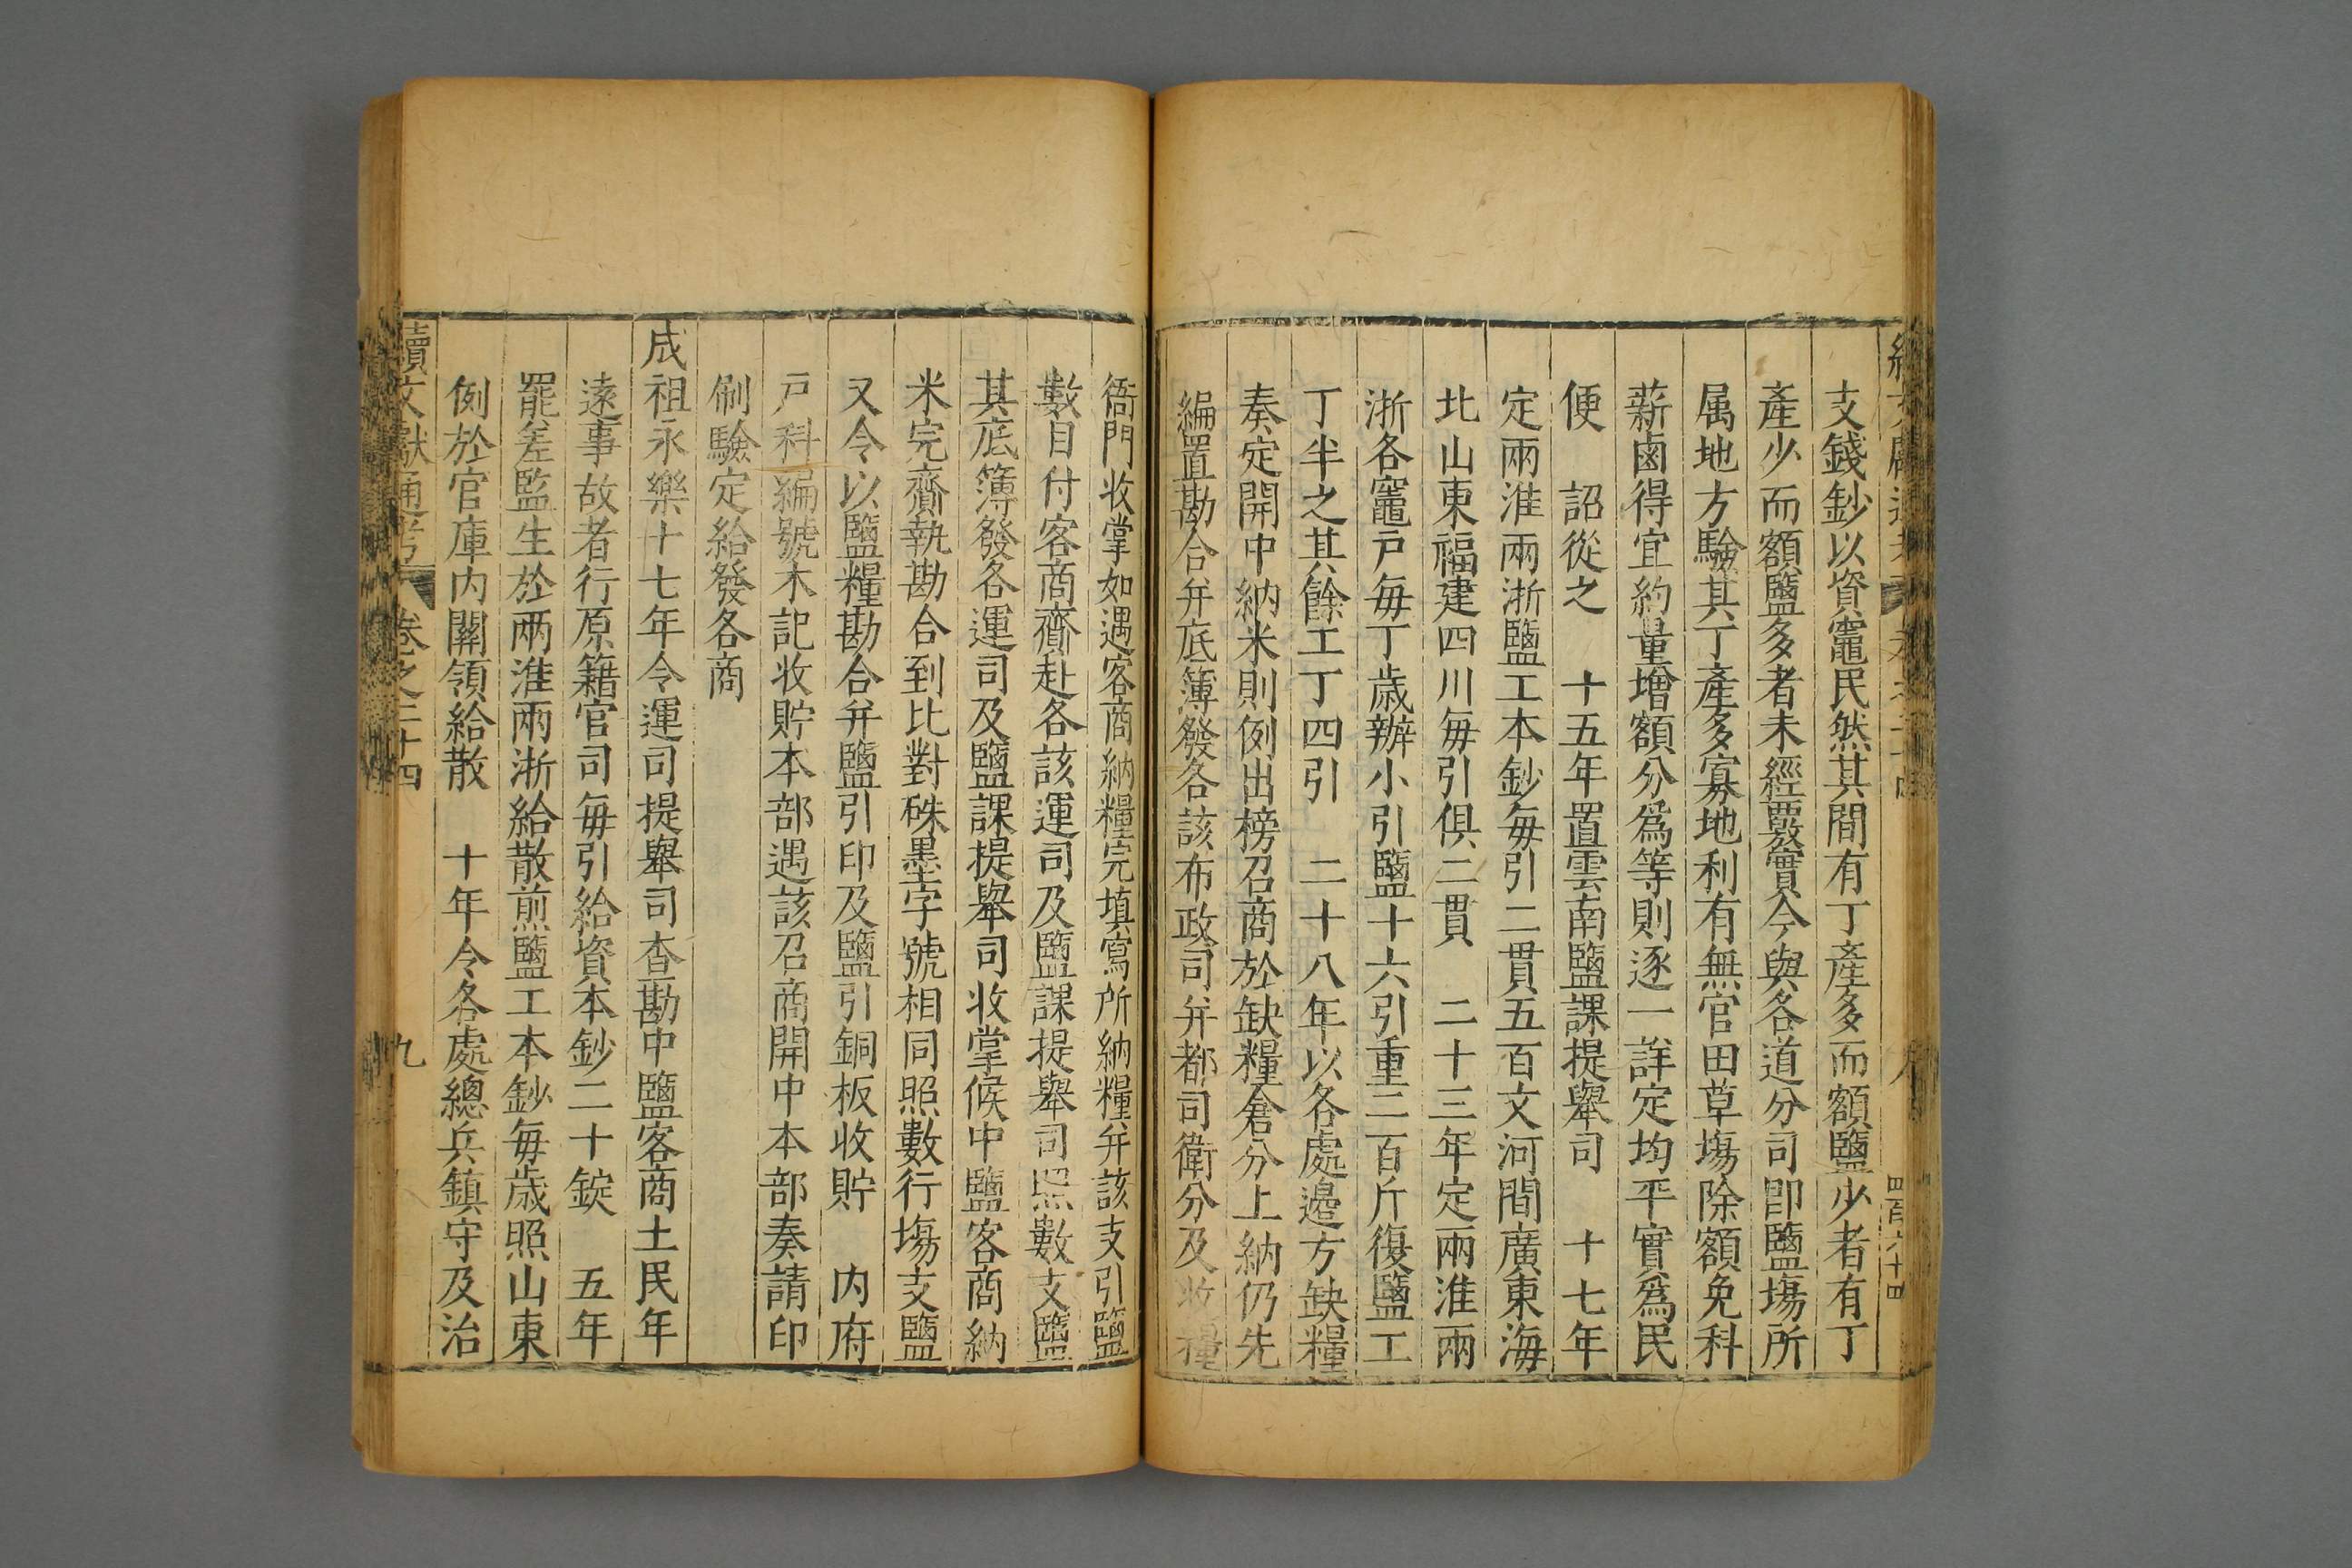 支錢鈔以資竈民然其間有丁產多而額鹽少者有丁
產少而額鹽多者未經覈實今與各道分司卽鹽塲所
属地方驗其丁產多寡地利有無官田草塲除額免科
薪鹵得宜約量增額分爲等則逐一詳定均平實爲民
便　詔從之　十五年置雲南鹽課提舉司　十七年
定兩淮兩浙鹽工本鈔每引二貫五百文河間廣東海
北山東福建四川每引俱二貫　二十三年定兩淮兩
浙各竈戸每丁歲辦小引鹽十六引重二百斤復鹽工
丁半之其餘工丁四引　二十八年以各處邊方缺糧
奏定開中納米則例出榜召商於缺糧倉分上納仍先
編置勘合并底簿發各該布政司并都司衛分及收糧
衙門收掌如遇客商納糧完填寫所納糧并該支引鹽
數目付客商齎赴各該運司及鹽課提舉司照數支鹽
其底簿發各運司及鹽課提舉司收掌候中鹽客商納
米完齎執勘合到比對硃墨字號相同照數行塲支鹽
又令以鹽糧勘合并鹽引印及鹽引銅板收貯　内府
戸科編號木記收貯本部遇該召商開中本部奏請印
刷驗定給發各商
成祖永樂十七年令運司提舉司查勘中鹽客商土民年
遠事故者行原籍官司每引給資本鈔二十錠　五年
罷差監生於兩淮兩浙給散煎鹽工本鈔每歲照山東
例於官庫内關領給散　十年令各處總兵鎮守及治
續文獻通考　卷之二十四　九